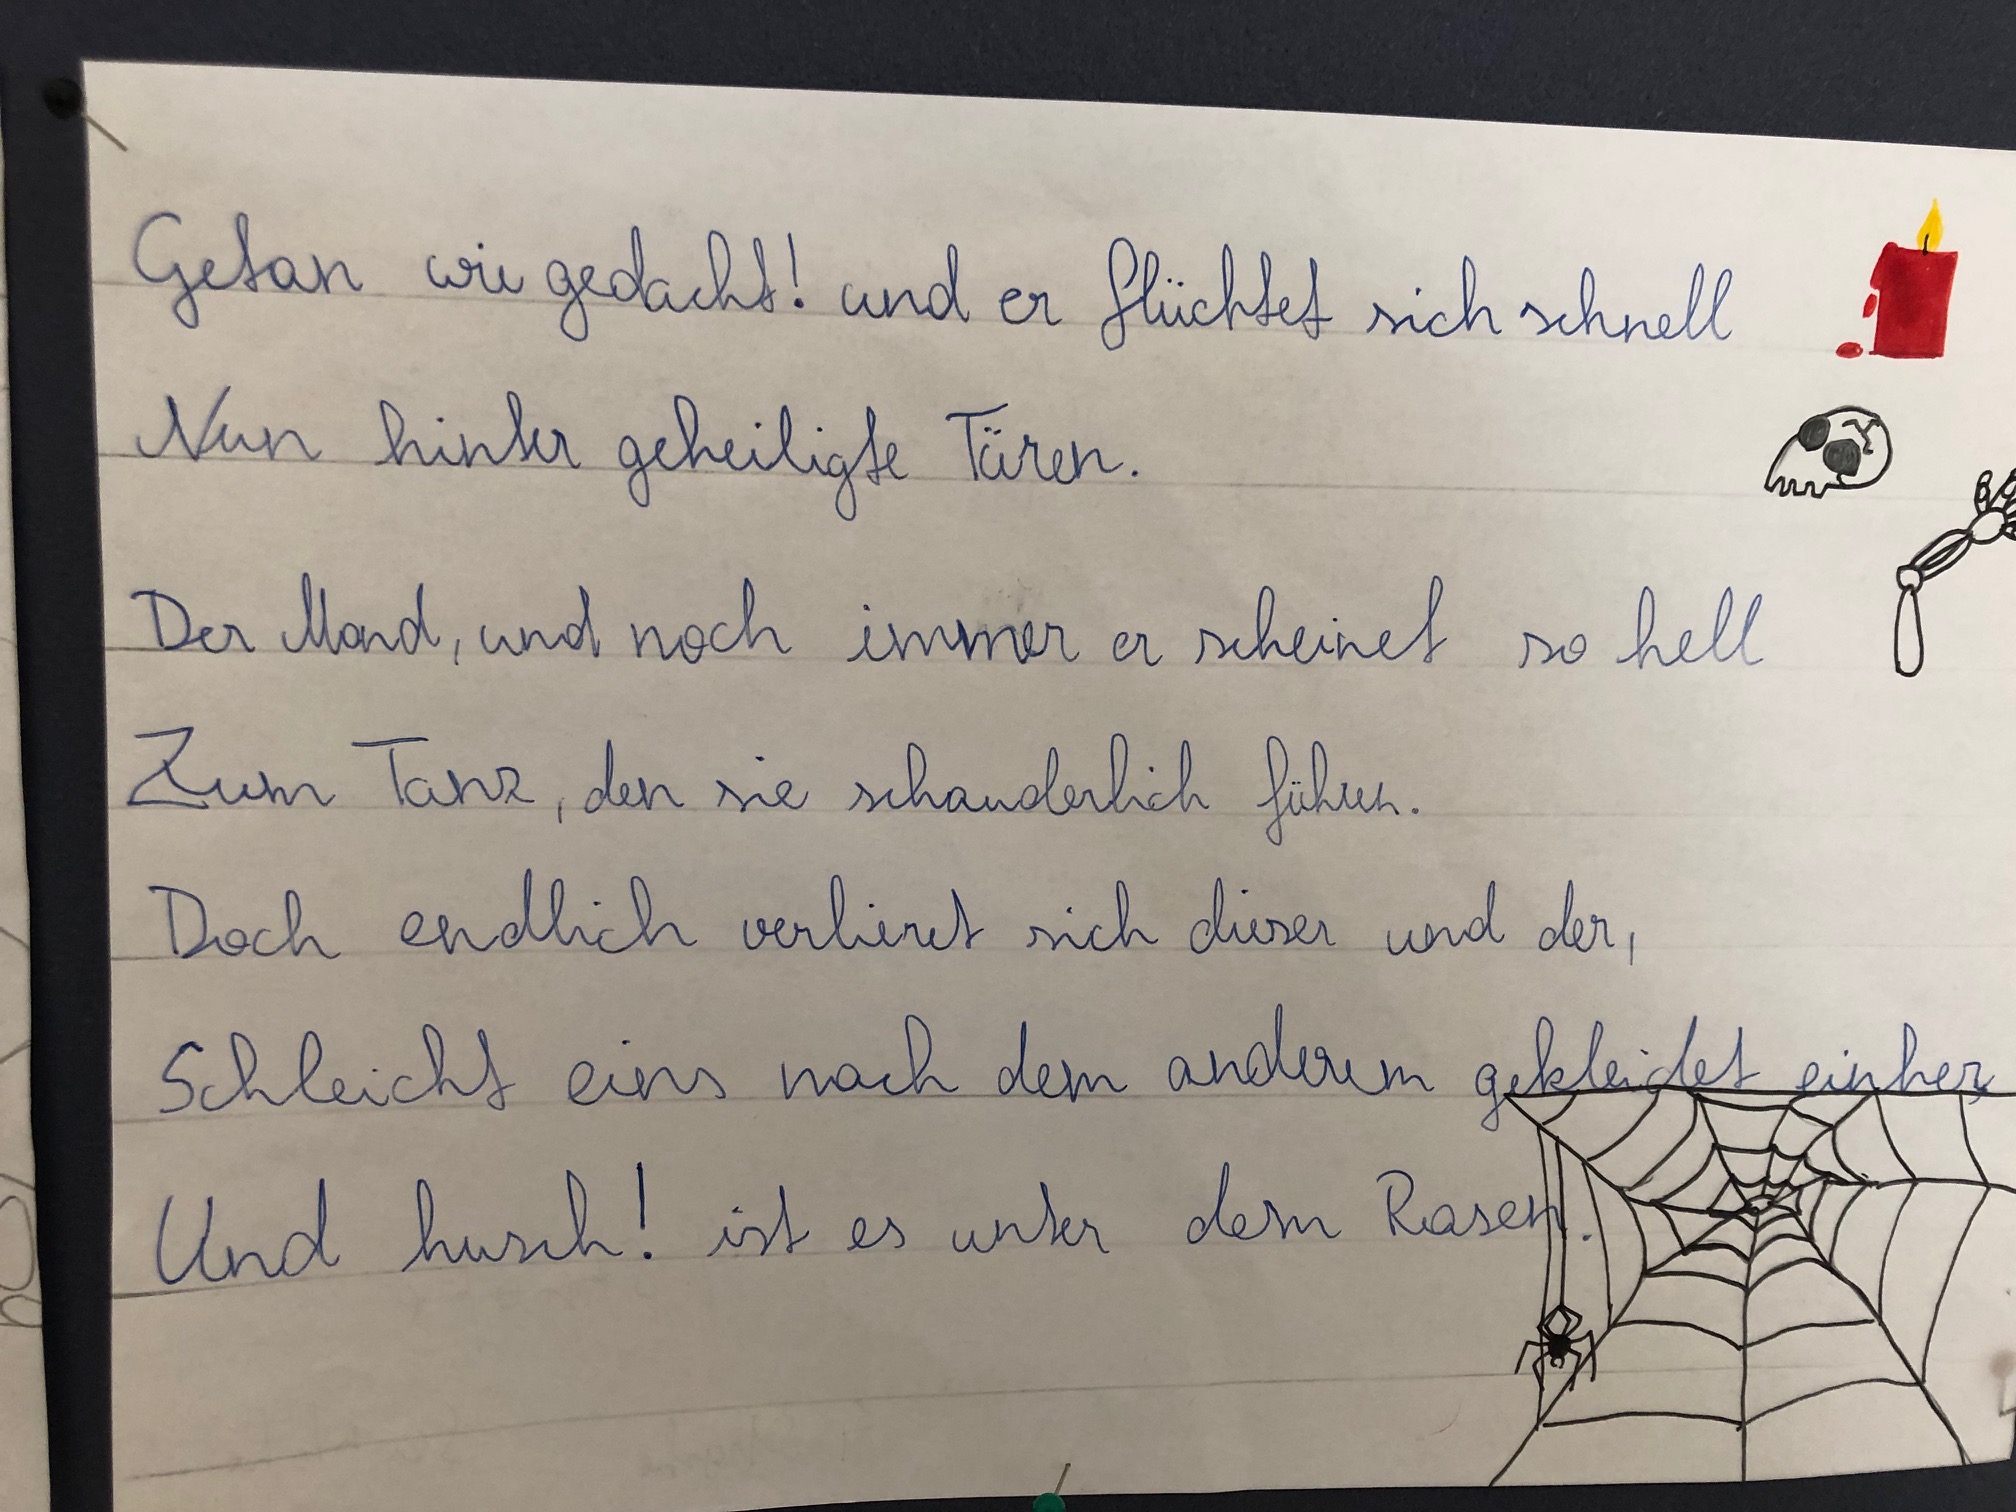 Getan wie gedacht! und er flüchtet sich schnell
Nun hinter geheiligte Türen.
Der Mond, und noch immer er scheinet so hell
Zum Tanz, den sie schauderlich führen.
Doch endlich verlieret sich dieser und der,
Schleicht eins nach dem anderem gekleidet einher,
Und husch! ist es unter dem Rasen.